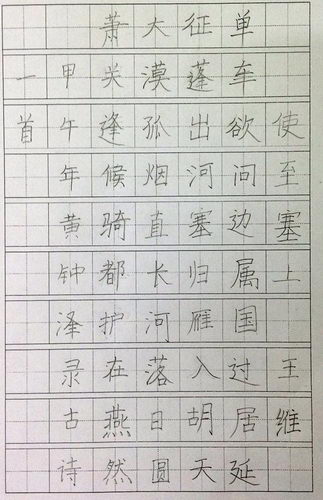 使至塞上 王维
单车欲问边属国过居延
征蓬出河塞归雁入胡天
大漠孤烟直长河落日圆
萧关逢候骑都护在燕然
甲午年黄钟泽录古诗
一首